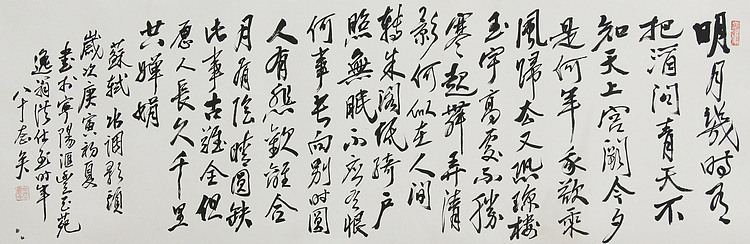 明月幾時有
把酒問青天不
知天上宮闕今夕
是何年我欲乘
風歸去又恐瓊樓
玉宇高處不勝
寒起舞弄清
影何似在人間
轉朱閣低綺戶
照無眠不應有恨
何事長向別時圓
人有悲歡離合
月有陰晴圓缺
此事古難全但
愿人長久千里
共嬋娟
蘇軾 水調歌頭
歲次庚寅初夏
書於寧陽滙豐玉苑
逸翁洪仕 時年
八十志矣